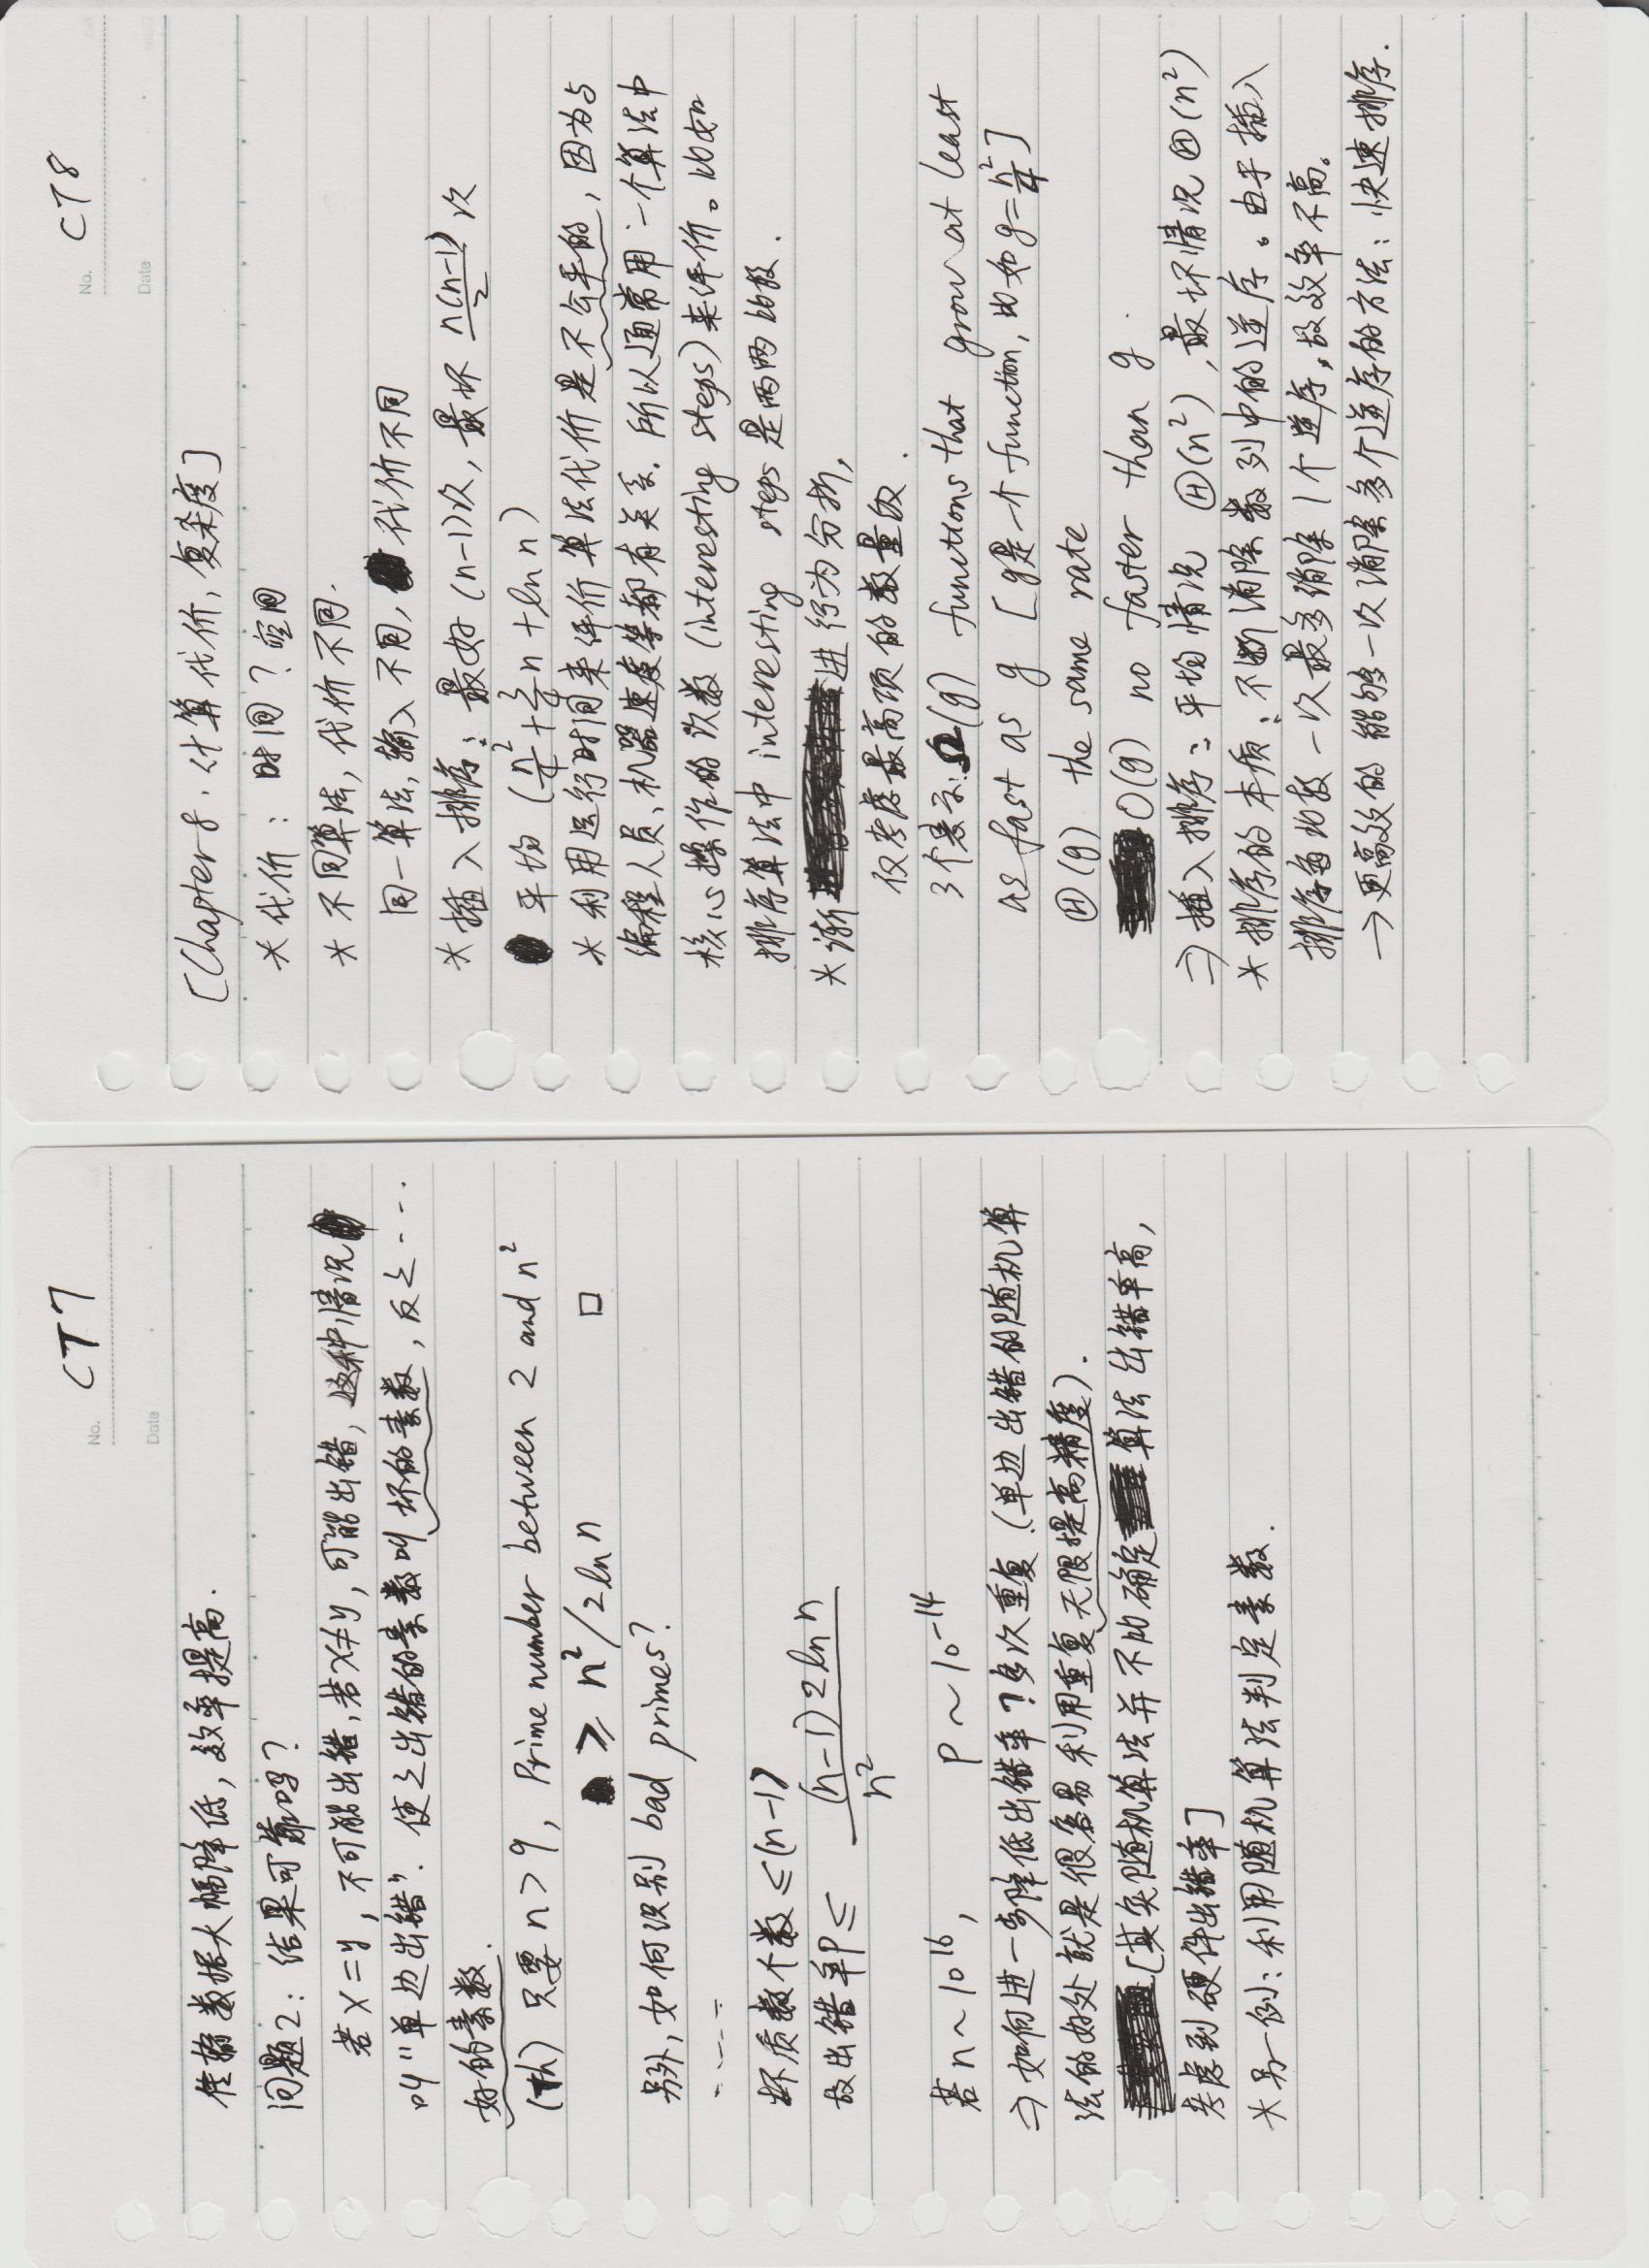 No. CT7
Date
传输数据大幅降低，效率提高.
问题2：结果可靠吗？
若X=y，不可能出错，若X≠y，可能出错，这种情况
叫"单边出错". 使之出错的素数叫坏的素数，反之…
好的素数.
(Th) 只要n>9, Prime number between 2 and n²
≥ n²/2ln n □
另外，如何识别 bad primes?
-----
坏质数个数≤(n-1)
故出错率P≤ (n-1)2ln n / n²
若n~10^16, P~10^-14
⇒如何进一步降低出错率？多次重复.（单边出错的随机算
法的好处就是很容易利用重复无限提高精度）.
[其实随机算法并不比确定算法出错率高，
考虑到硬件出错率]
*另一例：利用随机算法判定素数.
No. CT8
Date
[Chapter 8. 计算代价，复杂度]
*代价：时间？空间
*不同算法，代价不同.
同一算法，输入不同，代价不同
*插入排序：最好(n-1)次，最坏 n(n-1)/2 次
平均 (n²/4+3/4n+ln n)
*利用运行时间来评价算法代价是不公平的，因为与
编程人员、机器速度等都有关系. 所以通常用一个算法中
核心操作的次数(interesting steps)来评价。比如
排序算法中interesting steps是两两比较.
*渐进行为分析，
仅考虑最高项的数量级.
3个表示:Ω(g) functions that grow at least
as fast as g [g是一个function, 比如g=n²/4]
Θ(g) the same rate
O(g) no faster than g.
⇒插入排序：平均情况 Θ(n²)，最坏情况Θ(n²)
*排序的本质：不断消除数列中的逆序。由于插入
排序每比较一次最多消除1个逆序，故效率不高。
→更高效的能够一次消除多个逆序的方法：快速排序.